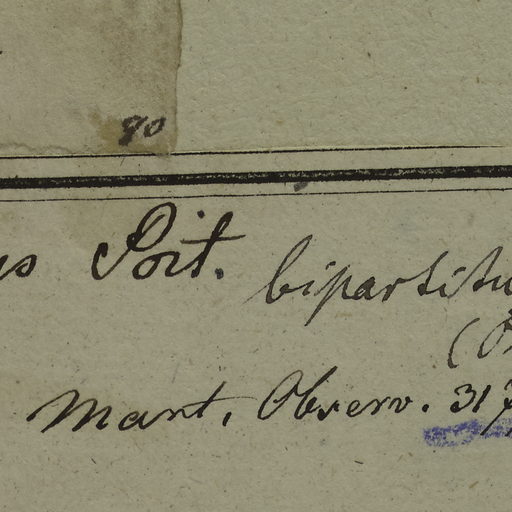 90
us Poit. bipartitu
(
Mart. Observ. 317